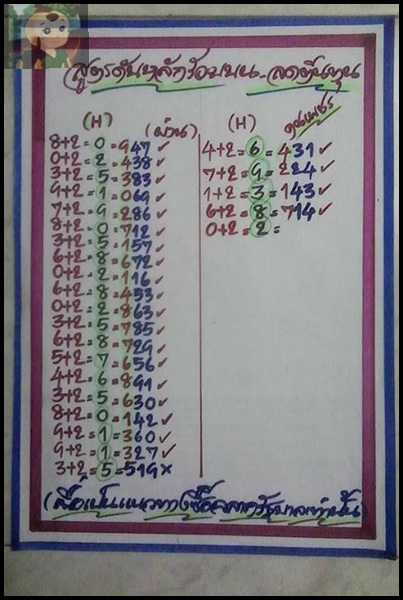 สูตรดับหลักร้อยบน - ลดต้นทุน
(H) (ผ่าน)
8+2=0=947✓
0+2=2=438✓
3+2=5=383✓
9+2=1=069✓
7+2=9=286✓
8+2=0=712✓
3+2=5=157✓
6+2=8=672✓
0+2=2=116✓
6+2=8=453✓
0+2=2=863✓
3+2=5=785✓
6+2=8=729✓
5+2=7=656✓
4+2=6=891✓
3+2=5=630✓
8+2=0=142✓
9+2=1=360✓
9+2=1=327✓
3+2=5=519×
(H)
4+2=6=431✓
7+2=9=224✓
1+2=3=143✓
6+2=8=714✓
0+2=2=
(เพื่อเป็นแนวทางซื้อสลากรัฐบาลเท่านั้น)